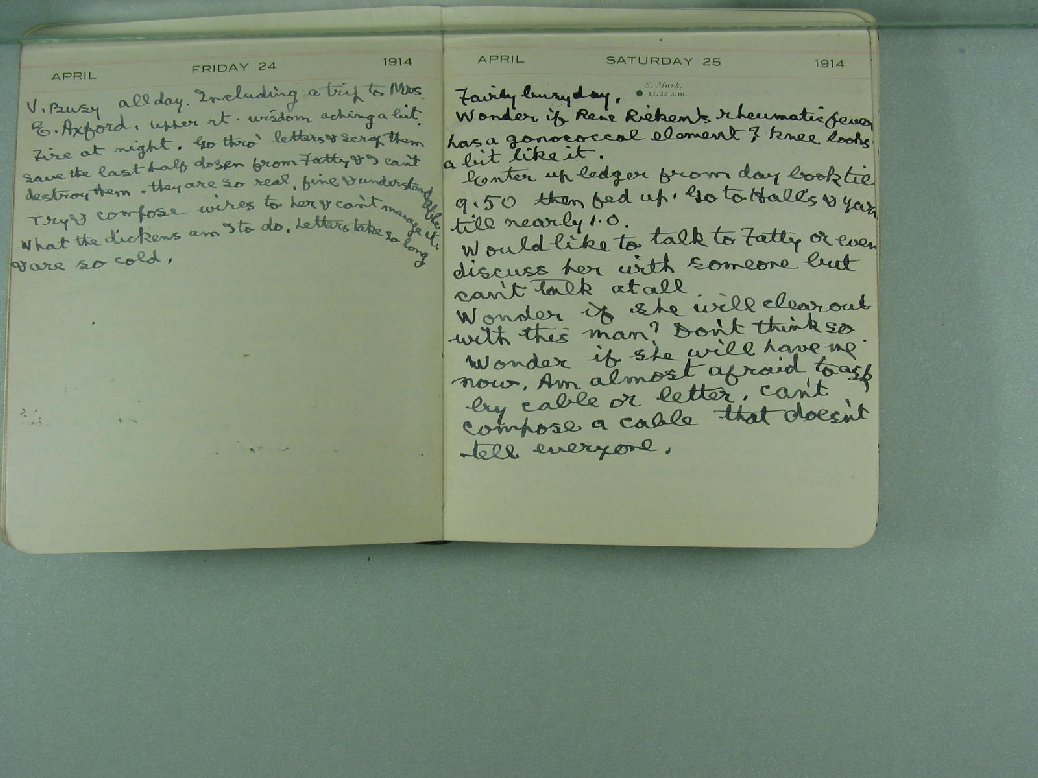 APRIL FRIDAY 24 1914
V. Busy all day. Including a trip to Mrs
E. Axford. upper rt. wisdom aching a bit
Fire at night. Go thro' letters & scrap them
save the last half dozen from Fatty & I can't
destroy them. they are so real, fine & understandable
Try & compose wires to her & can't manage it.
What the dickens am I to do. Letters take so long
& are so cold.
APRIL SATURDAY 25 1914
S. Mark.
11.22 a.m.
Fairly busy day.
Wonder if Rene Rieken's rheumatic fever
has a gonococcal element & knee looks
a bit like it.
Center up ledger from day book till
9.50 then fed up. Go to Hall's & yarn
till nearly 1.0.
Would like to talk to Fatty or even
discuss her with someone but
can't talk at all
Wonder if she will clear out
with this man? Don't think so
Wonder if she will have me
now. Am almost afraid to ask
by cable or letter. can't
compose a cable that doesn't
tell everyone.